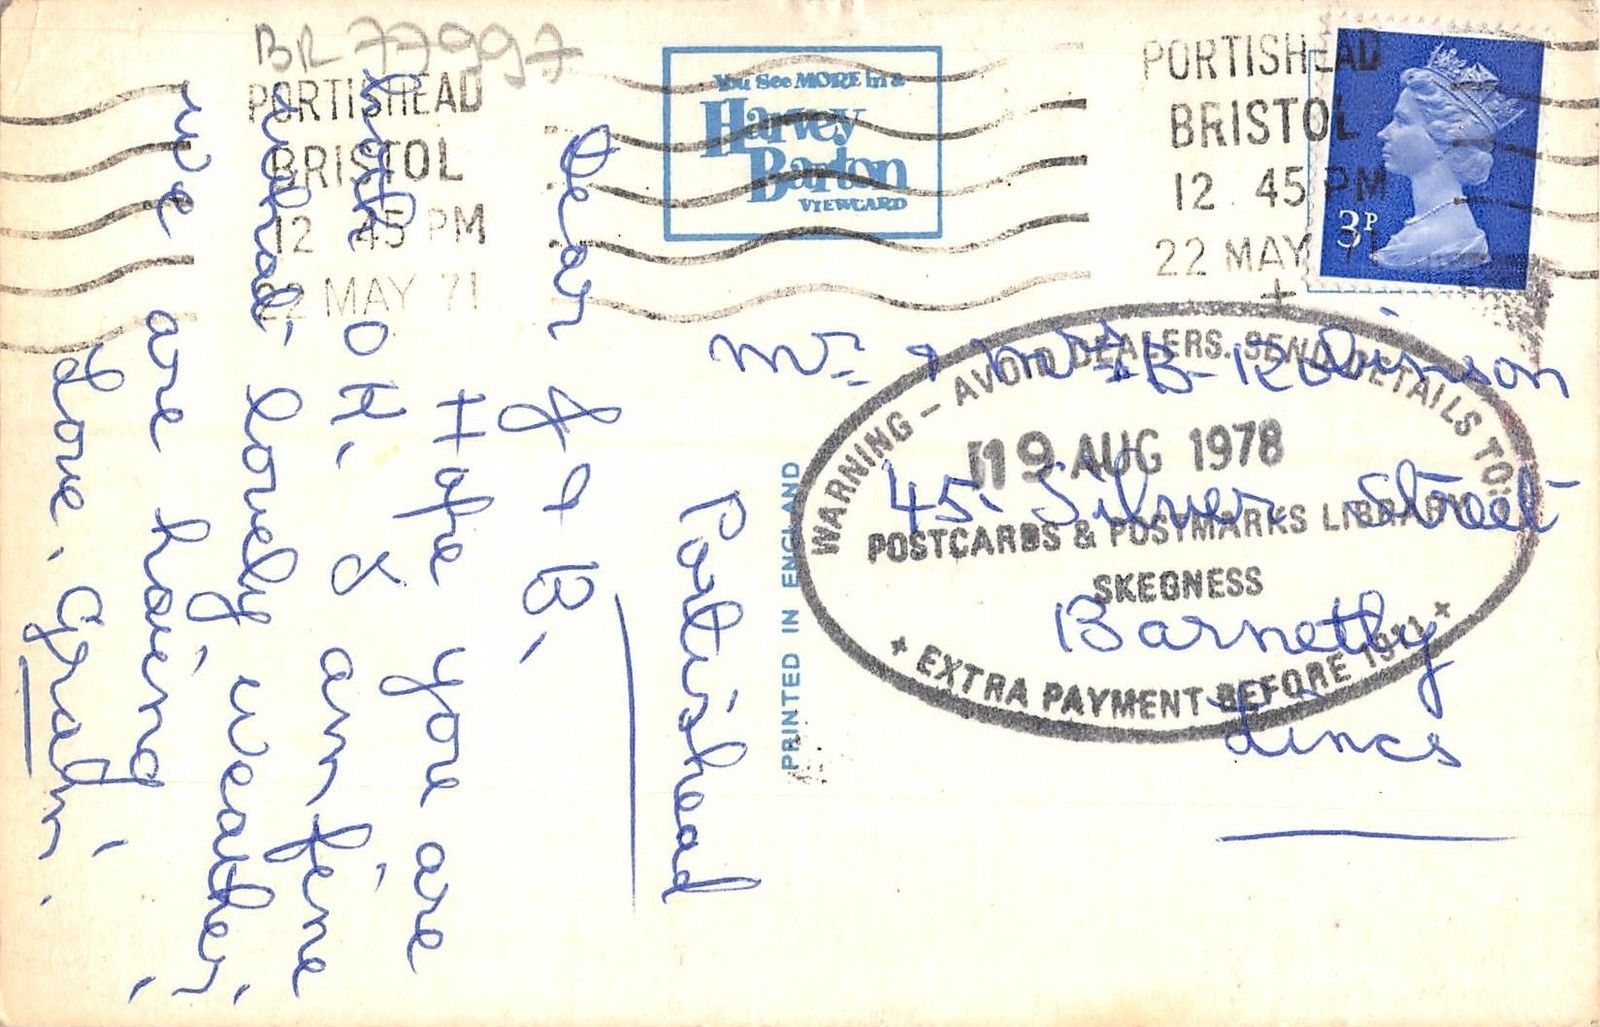 BR 77997
PORTISHEAD
BRISTOL
12 45 PM
22 MAY 71
You See MORE in a
Harvey
Barton
VIEWCARD
PORTISHEAD
BRISTOL
12 45 PM
22 MAY 71
3P
Portishead
Dear J & B,
Hope you are
OK, I am fine
lovely weather,
we are having
Love,
PRINTED IN ENGLAND
Mr. & Mrs B. Robinson
45. Silver Street
Barnetby
Lincs
WARNING - AVOID DEALERS. SEND DETAILS TO:
19 AUG 1978
POSTCARDS & POSTMARKS LIBRARY
SKEGNESS
+ EXTRA PAYMENT BEFORE 1911 +